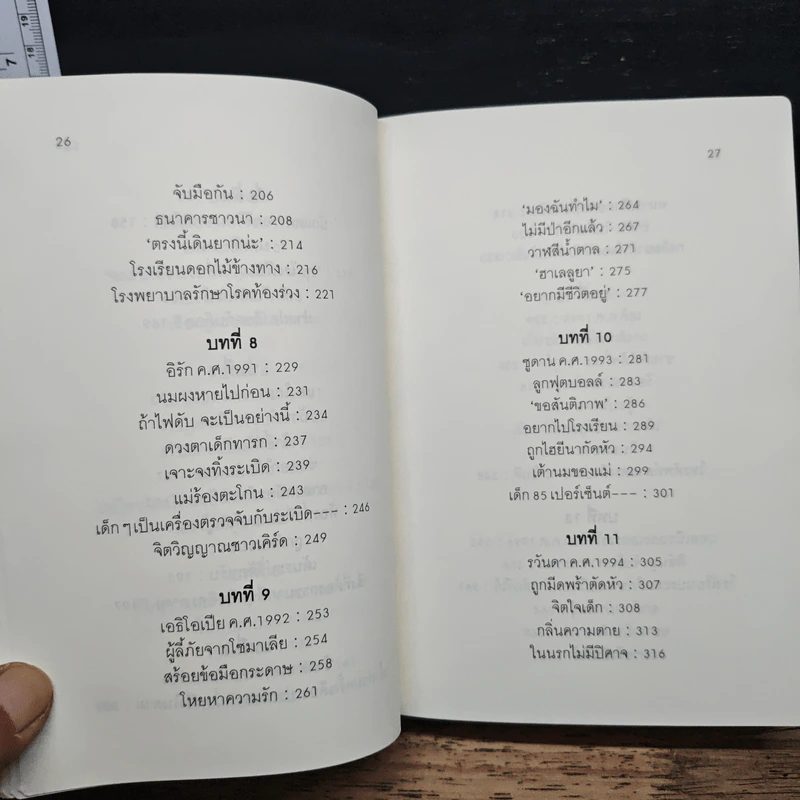 26
จับมือกัน : 206
ธนาคารชาวนา : 208
‘ตรงนี้เดินยากน่ะ’ : 214
โรงเรียนดอกไม้ข้างทาง : 216
โรงพยาบาลรักษาโรคท้องร่วง : 221
บทที่ 8
อิรัก ค.ศ.1991 : 229
นมผงหายไปก่อน : 231
ถ้าไฟดับ จะเป็นอย่างนี้ : 234
ดวงตาเด็กทารก : 237
เจาะจงทิ้งระเบิด : 239
แม่ร้องตะโกน : 243
เด็กๆเป็นเครื่องตรวจจับกับระเบิด--- : 246
จิตวิญญาณชาวเคิร์ด : 249
บทที่ 9
เอธิโอเปีย ค.ศ.1992 : 253
ผู้ลี้ภัยจากโซมาเลีย : 254
สร้อยข้อมือกระดาษ : 258
โหยหาความรัก : 261
27
‘มองฉันทำไม’ : 264
ไม่มีป่าอีกแล้ว : 267
วาฬสีน้ำตาล : 271
‘ฮาเลลูยา’ : 275
‘อยากมีชีวิตอยู่’ : 277
บทที่ 10
ซูดาน ค.ศ.1993 : 281
ลูกฟุตบอลล์ : 283
‘ขอสันติภาพ’ : 286
อยากไปโรงเรียน : 289
ถูกไฮยีนากัดหัว : 294
เต้านมของแม่ : 299
เด็ก 85 เปอร์เซ็นต์--- : 301
บทที่ 11
รวันดา ค.ศ.1994 : 305
ถูกมีดพร้าตัดหัว : 307
จิตใจเด็ก : 308
กลิ่นความตาย : 313
ในนรกไม่มีปิศาจ : 316
7
18
19